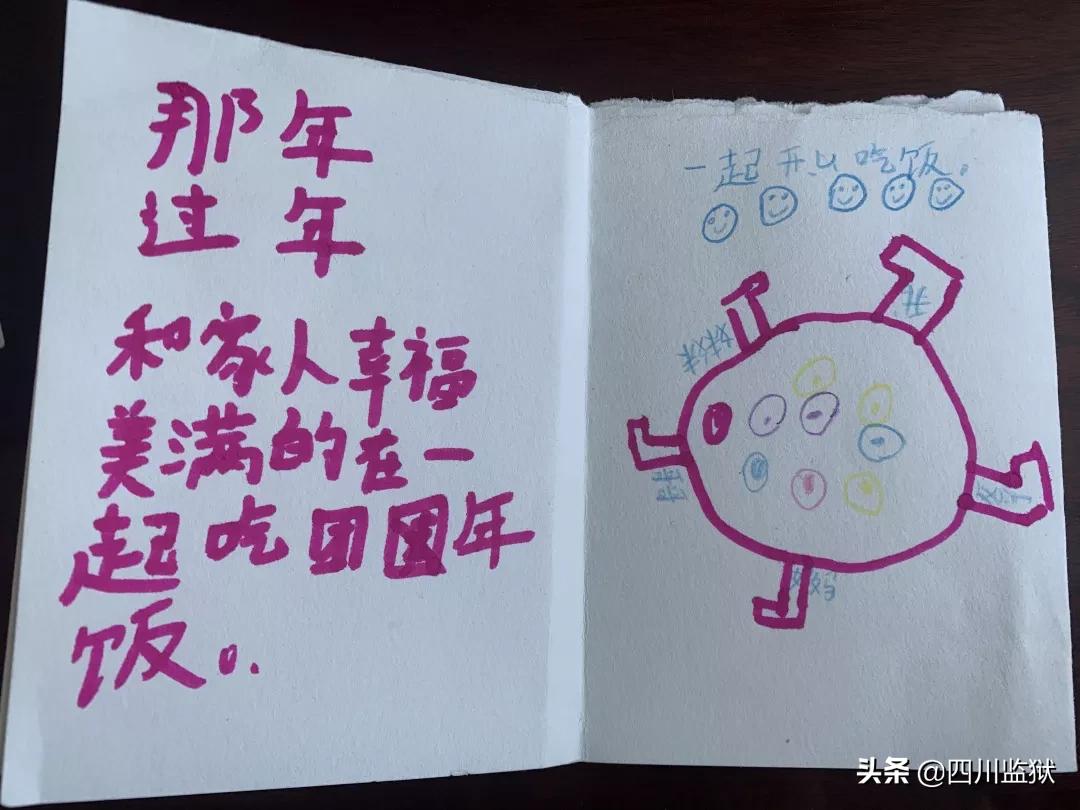 那年
过年
和家人幸福
美满的在一
起吃团团年
饭。
一起开心吃饭。
妹妹
妈妈
头条 @四川监狱